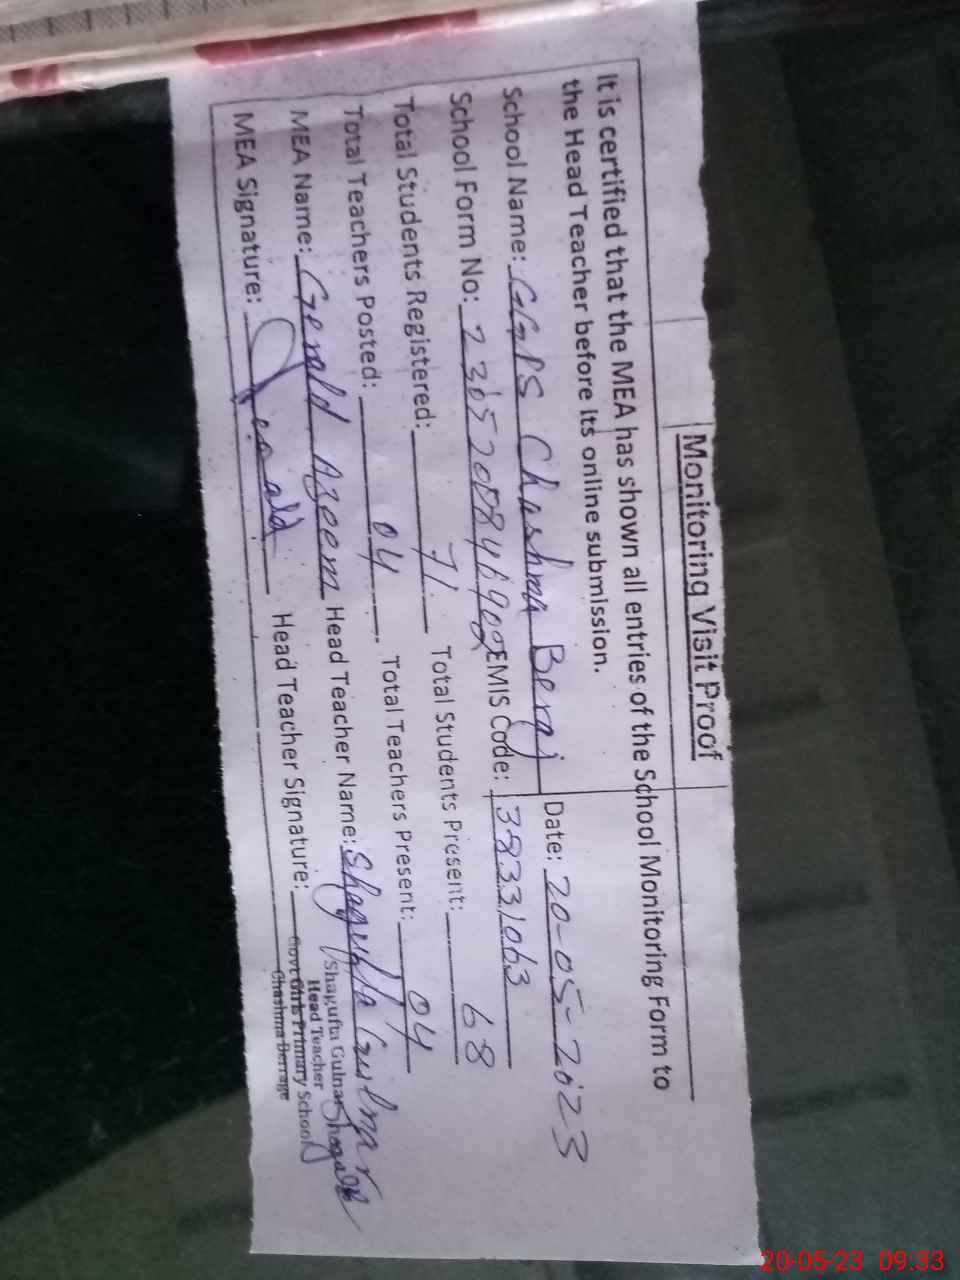 Monitoring Visit Proof
It is certified that the MEA has shown all entries of the School Monitoring Form to
the Head Teacher before its online submission.
School Name: GGPS Chashma Beraj Date: 20-05-2023
School Form No: EMIS Code: 38331063
Total Students Registered: 71 Total Students Present: 68
Total Teachers Posted: 04 Total Teachers Present: 04
MEA Name: Gerald Azeem Head Teacher Name: Shagufta Gulnar
MEA Signature: Jerald Head Teacher Signature:
Shagufta Gulnar
Head Teacher
Govt Girls Primary School
Chashma Berrage
20-05-23 09:33